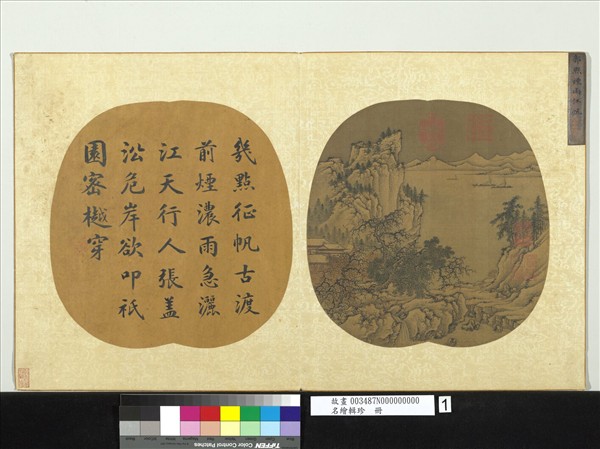 幾點征帆古渡
前煙濃雨急灑
江天行人張蓋
沿危岸欲叩祇
園密樾穿
故畫 003487N000000000
名繪輯珍 冊
1
TIFFEN Color Control Patches